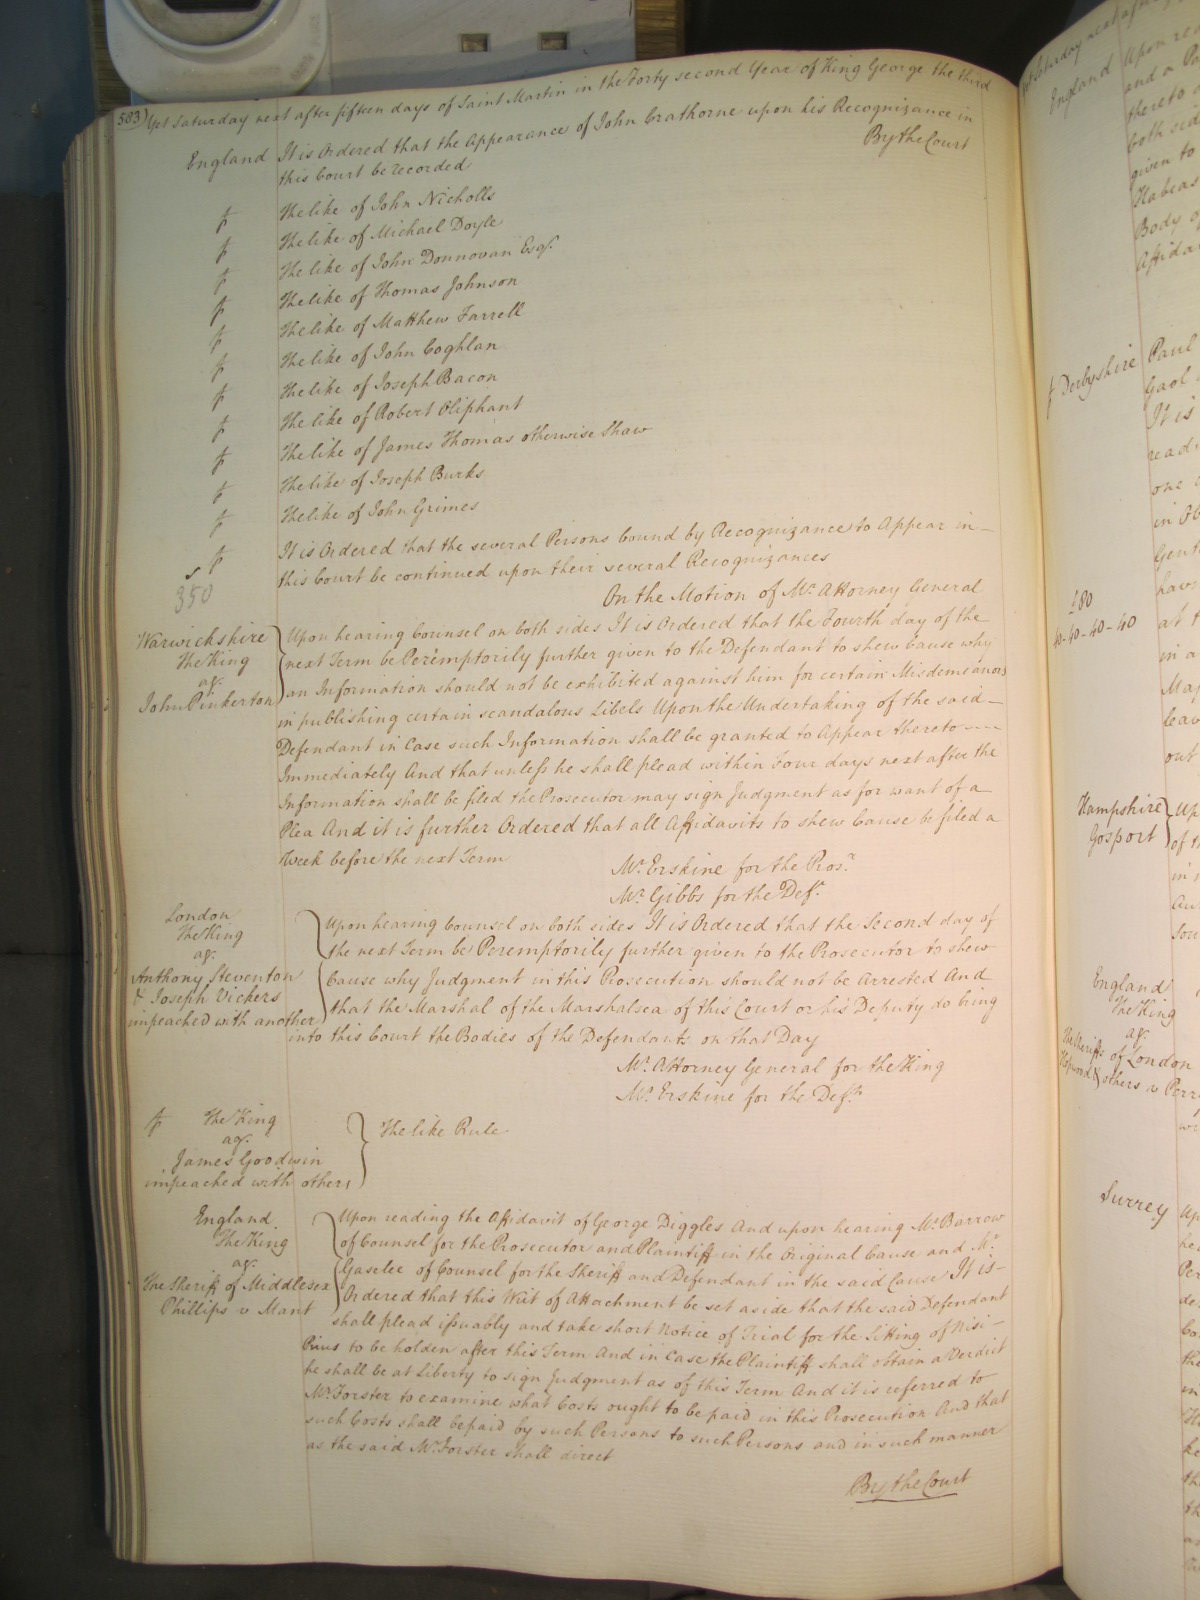 583) Yet Saturday next after fifteen days of Saint Martin in the Forty second Year of King George the third
England It is Ordered that the Appearance of John Crathorne upon his Recognizance in
this Court be recorded
By the Court
The like of John Nicholls
The like of Michael Doyle
The like of John Donnovan Esqr.
The like of Thomas Johnson
The like of Matthew Farrell
The like of John Coghlan
The like of Joseph Bacon
The like of Robert Oliphant
The like of James Thomas otherwise Shaw
The like of Joseph Burks
The like of John Grimes
It is Ordered that the several Persons bound by Recognizance to Appear in
this Court be continued upon their several Recognizances
350
On the Motion of Mr. Attorney General
Warwickshire
The King
agt.
John Pinkerton
Upon hearing Counsel on both sides It is Ordered that the Fourth day of the
next Term be Peremptorily further given to the Defendant to shew Cause why
an Information should not be exhibited against him for certain Misdemeanors
in publishing certain scandalous Libels Upon the Undertaking of the said
Defendant in Case such Information shall be granted to Appear thereto
Immediately And that unless he shall plead within Four days next after the
Information shall be filed the Prosecutor may sign Judgment as for want of a
Plea And it is further Ordered that all Affidavits to shew Cause be filed a
Week before the next Term
Mr. Erskine for the Pros.r
Mr. Gibbs for the Def.t
London
The King
agt.
Anthony Steventon
& Joseph Vickers
impeached with another
Upon hearing Counsel on both sides It is Ordered that the Second day of
the next Term be Peremptorily further given to the Prosecutor to shew
Cause why Judgment in this Prosecution should not be Arrested And
that the Marshal of the Marshalsea of this Court or his Deputy do bring
into this Court the Bodies of the Defendants on that Day
Mr. Attorney General for the King
Mr. Erskine for the Def.ts
The King
agt.
James Goodwin
impeached with others
The like Rule
England
The King
agt.
The Sheriff of Middlesex
Phillips v Mant
Upon reading the Affidavit of George Diggles And upon hearing Mr. Barrow
of Counsel for the Prosecutor and Plaintiff in the Original Cause and Mr.
Gaselee of Counsel for the Sheriff and Defendant in the said Cause It is
Ordered that this Writ of Attachment be set aside that the said Defendant
shall plead issuably and take short Notice of Trial for the Sitting of Nisi
Prius to be holden after this Term And in Case the Plaintiff shall obtain a Verdict
he shall be at Liberty to sign Judgment as of this Term And it is referred to
Mr. Forster to examine what Costs ought to be paid in this Prosecution And that
such Costs shall be paid by such Persons to such Persons and in such manner
as the said Mr. Forster shall direct
By the Court
England
Upon
and a
thereto
both
given to
Habeas
Body
Derbyshire Paul
Gaol
It is
one
£80
40-40-40-40
at
in a
out
Hampshire
Gosport
England
The King
agt.
The Sheriffs of London
others v
Surrey